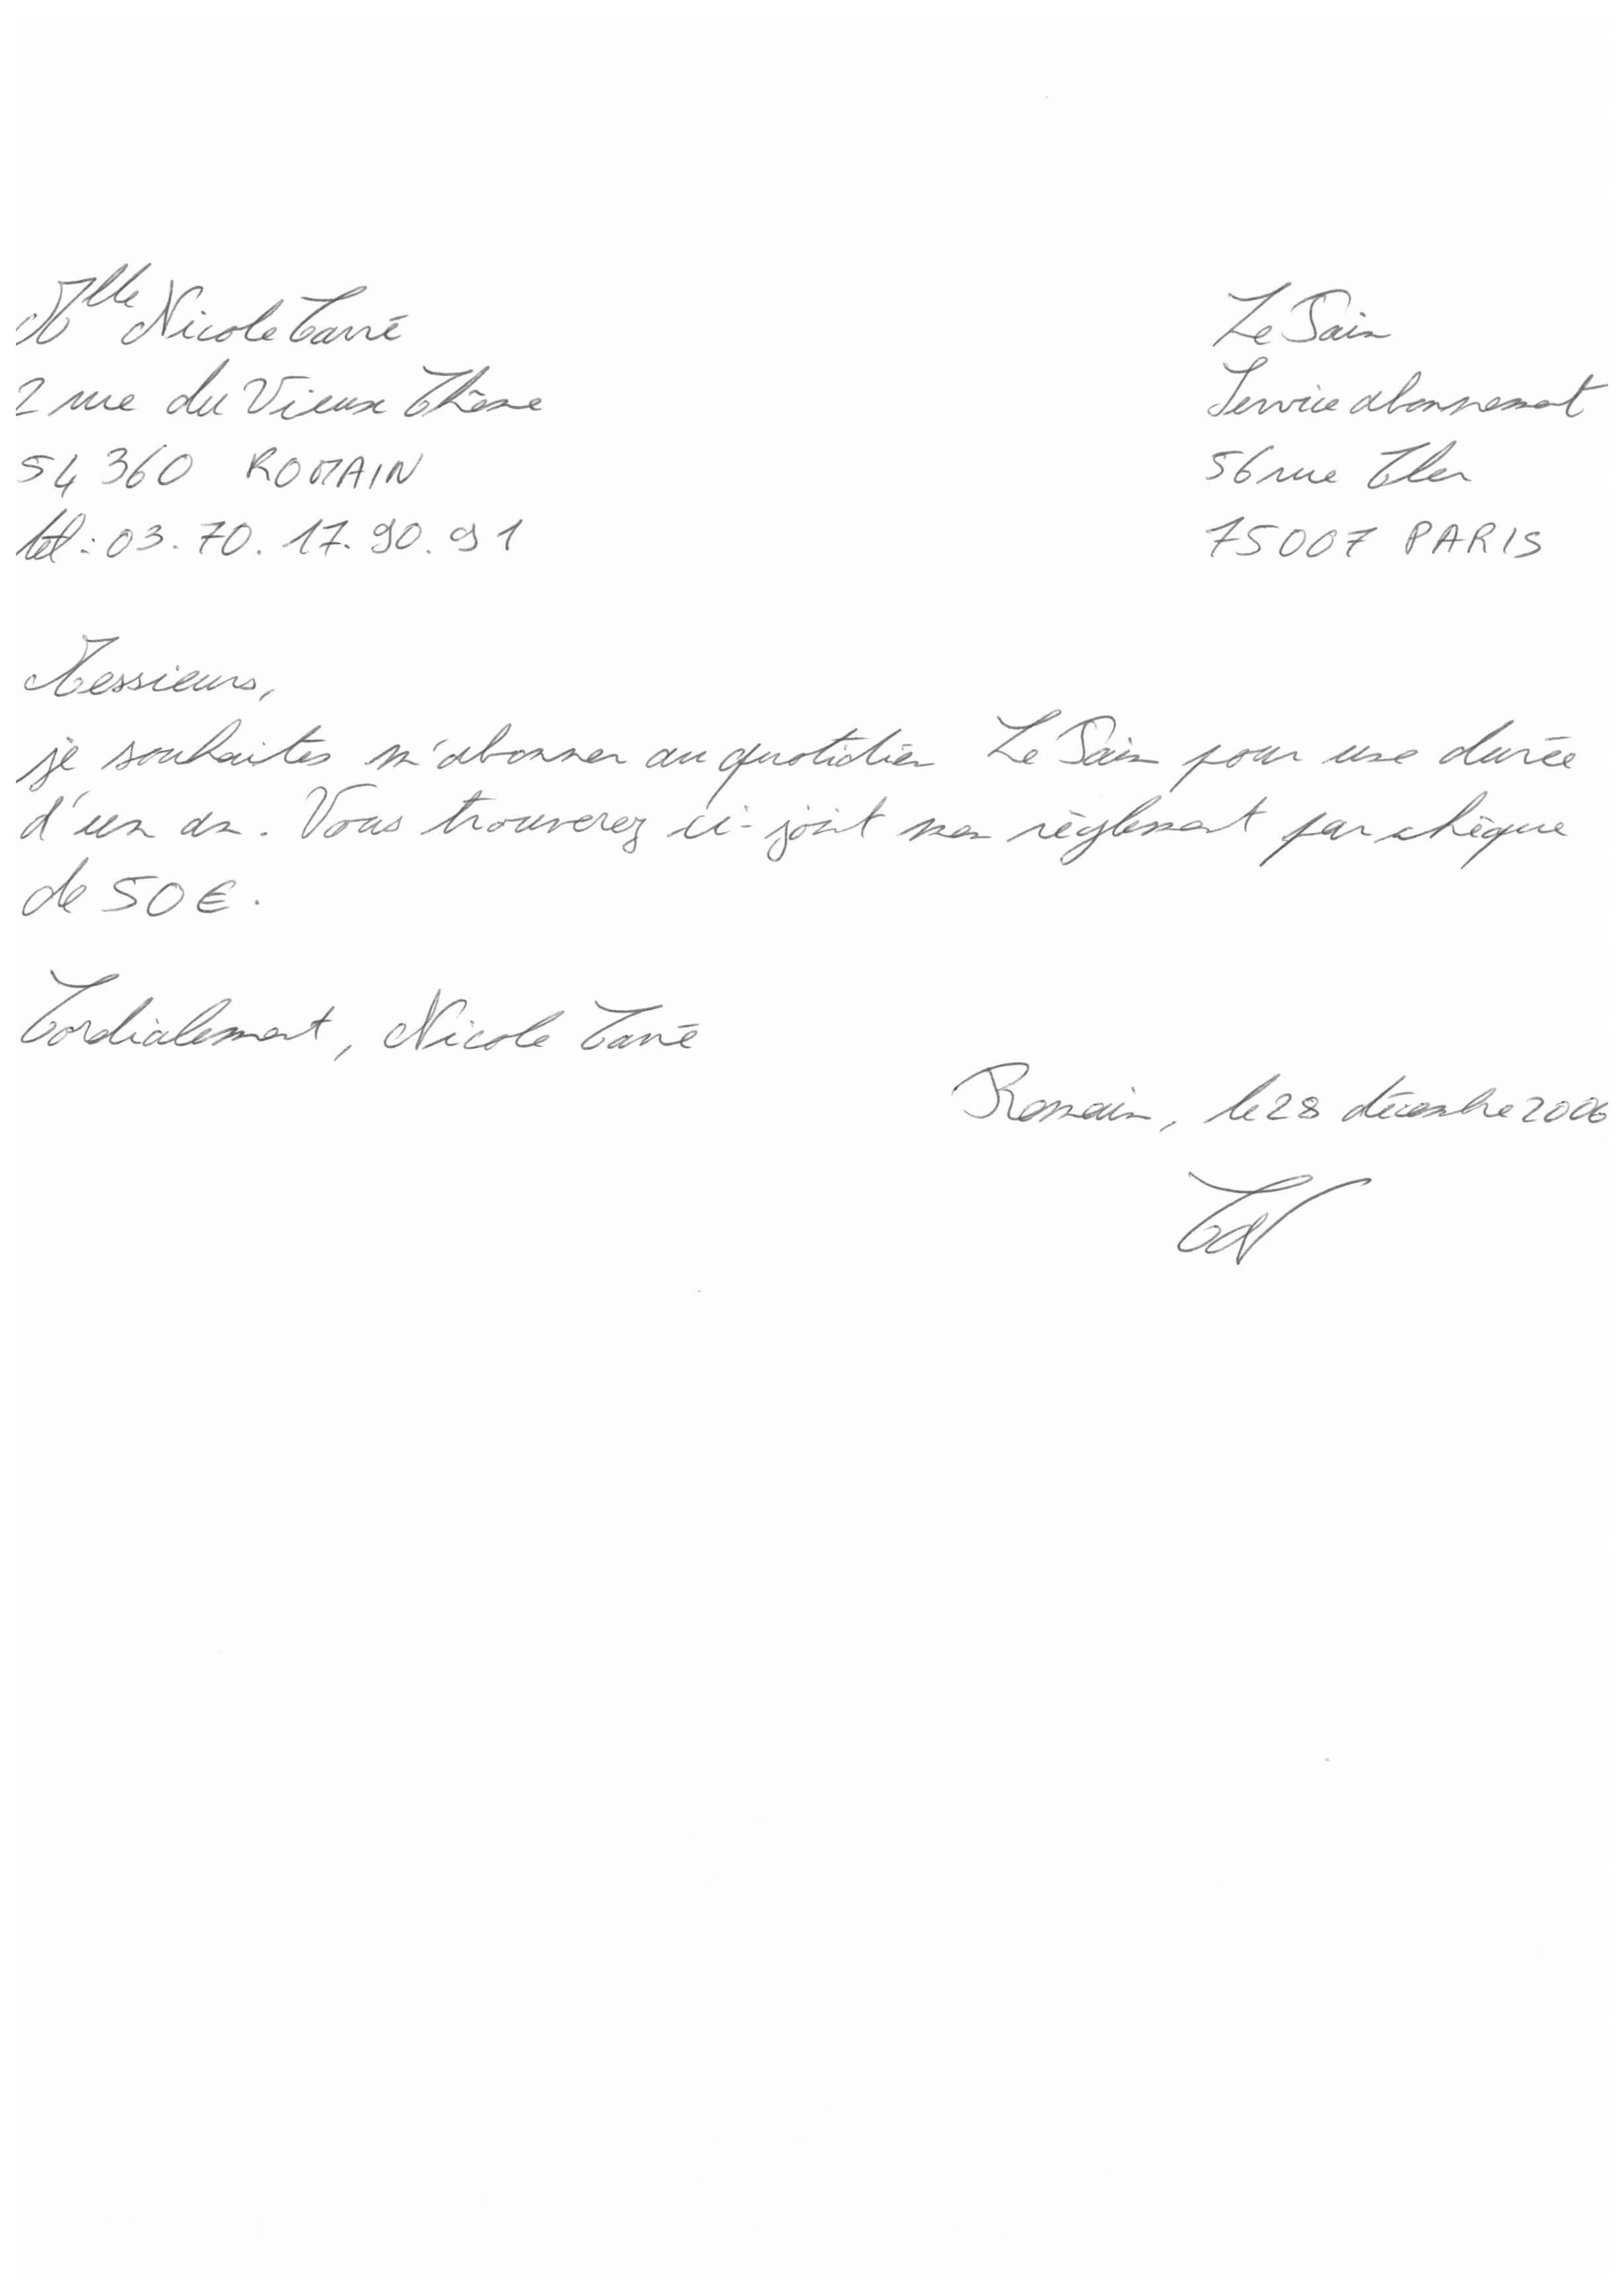 Mlle Nicole Carré
2 rue du Vieux Chêne
54 360 ROMAIN
tél : 03. 70. 17. 90. 91
Le Pain
Service abonnement
56 rue Cler
75007 PARIS
Messieurs,
je souhaites m'abonner au quotidien Le Pain pour une durée
d'un an. Vous trouverez ci-joint mon règlement par chèque
de 50€.
Cordialement, Nicole Carré
Romain, le 28 décembre 2006